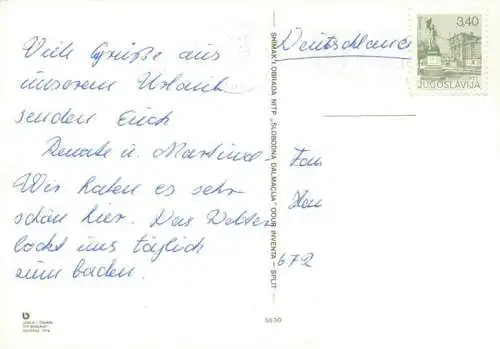 Viele Grüße aus
unserem Urlaub
senden Euch
Renate u. Martina.
Wir haben es sehr
schön hier. Das Wetter
lockt uns täglich
zum baden.
SNIMAK I OBRADA NITP „SLOBODNA DALMACIJA" OOUR INVENTA — SPLIT —
5530
Deutschland
3,40
JUGOSLAVIJA
Fam
672